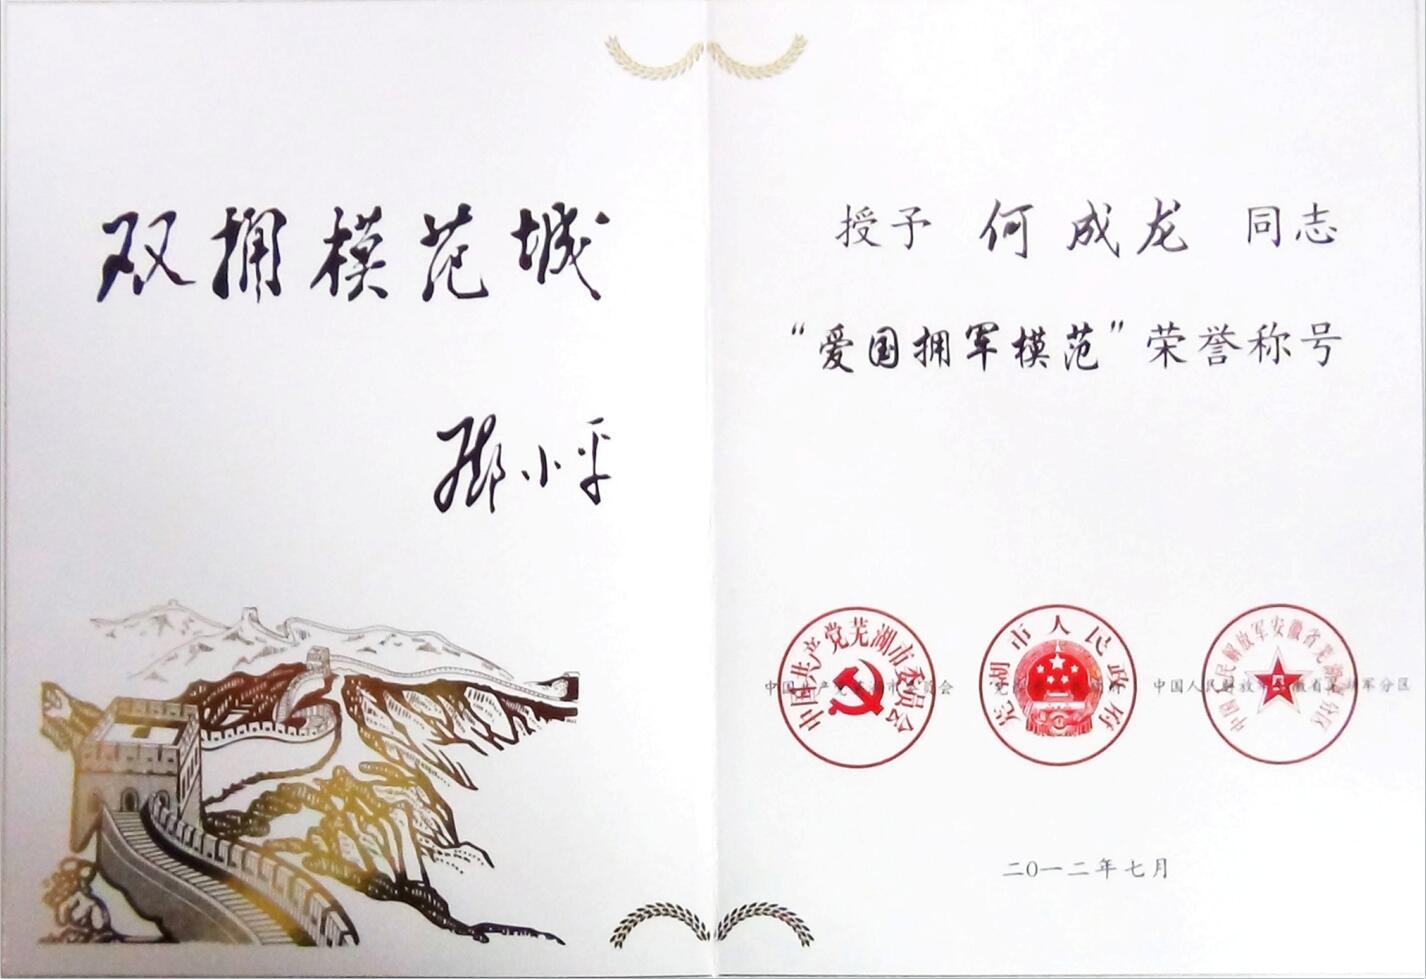 双拥模范城
邓小平
授予 何成龙 同志
“爱国拥军模范”荣誉称号
中国共产党芜湖市委员会
芜湖市人民政府
中国人民解放军安徽省芜湖军分区
中国共产党芜湖市委员会
芜湖市人民政府
中国人民解放军安徽省芜湖军分区
二〇一二年七月